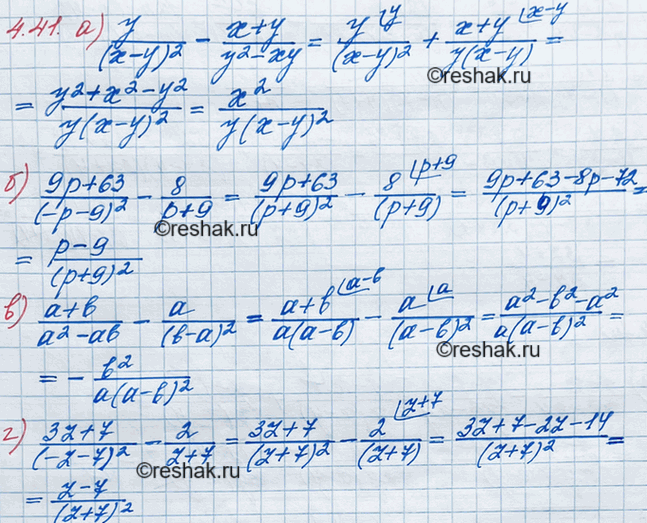 4.41. а) y/(x-y)² - x+y/y²-xy = y⌊y/(x-y)² + x+y⌊x-y/y(x-y) =
©reshak.ru
= y²+x²-y²/y(x-y)² = x²/y(x-y)²
б) 9p+63/(-p-9)² - 8/p+9 = 9p+63/(p+9)² - 8⌊p+9/(p+9) = 9p+63-8p-72/(p+9)² =
©reshak.ru
= p-9/(p+9)²
в) a+b/a²-ab - a/(b-a)² = a+b⌊a-b/a(a-b) - a⌊a/(a-b)² = a²-b²-a²/a(a-b)² =
©reshak.ru
= - b²/a(a-b)²
г) 3z+7/(-z-7)² - 2/z+7 = 3z+7/(z+7)² - 2⌊z+7/(z+7) = 3z+7-2z-14/(z+7)² =
©reshak.ru
= z-7/(z+7)²